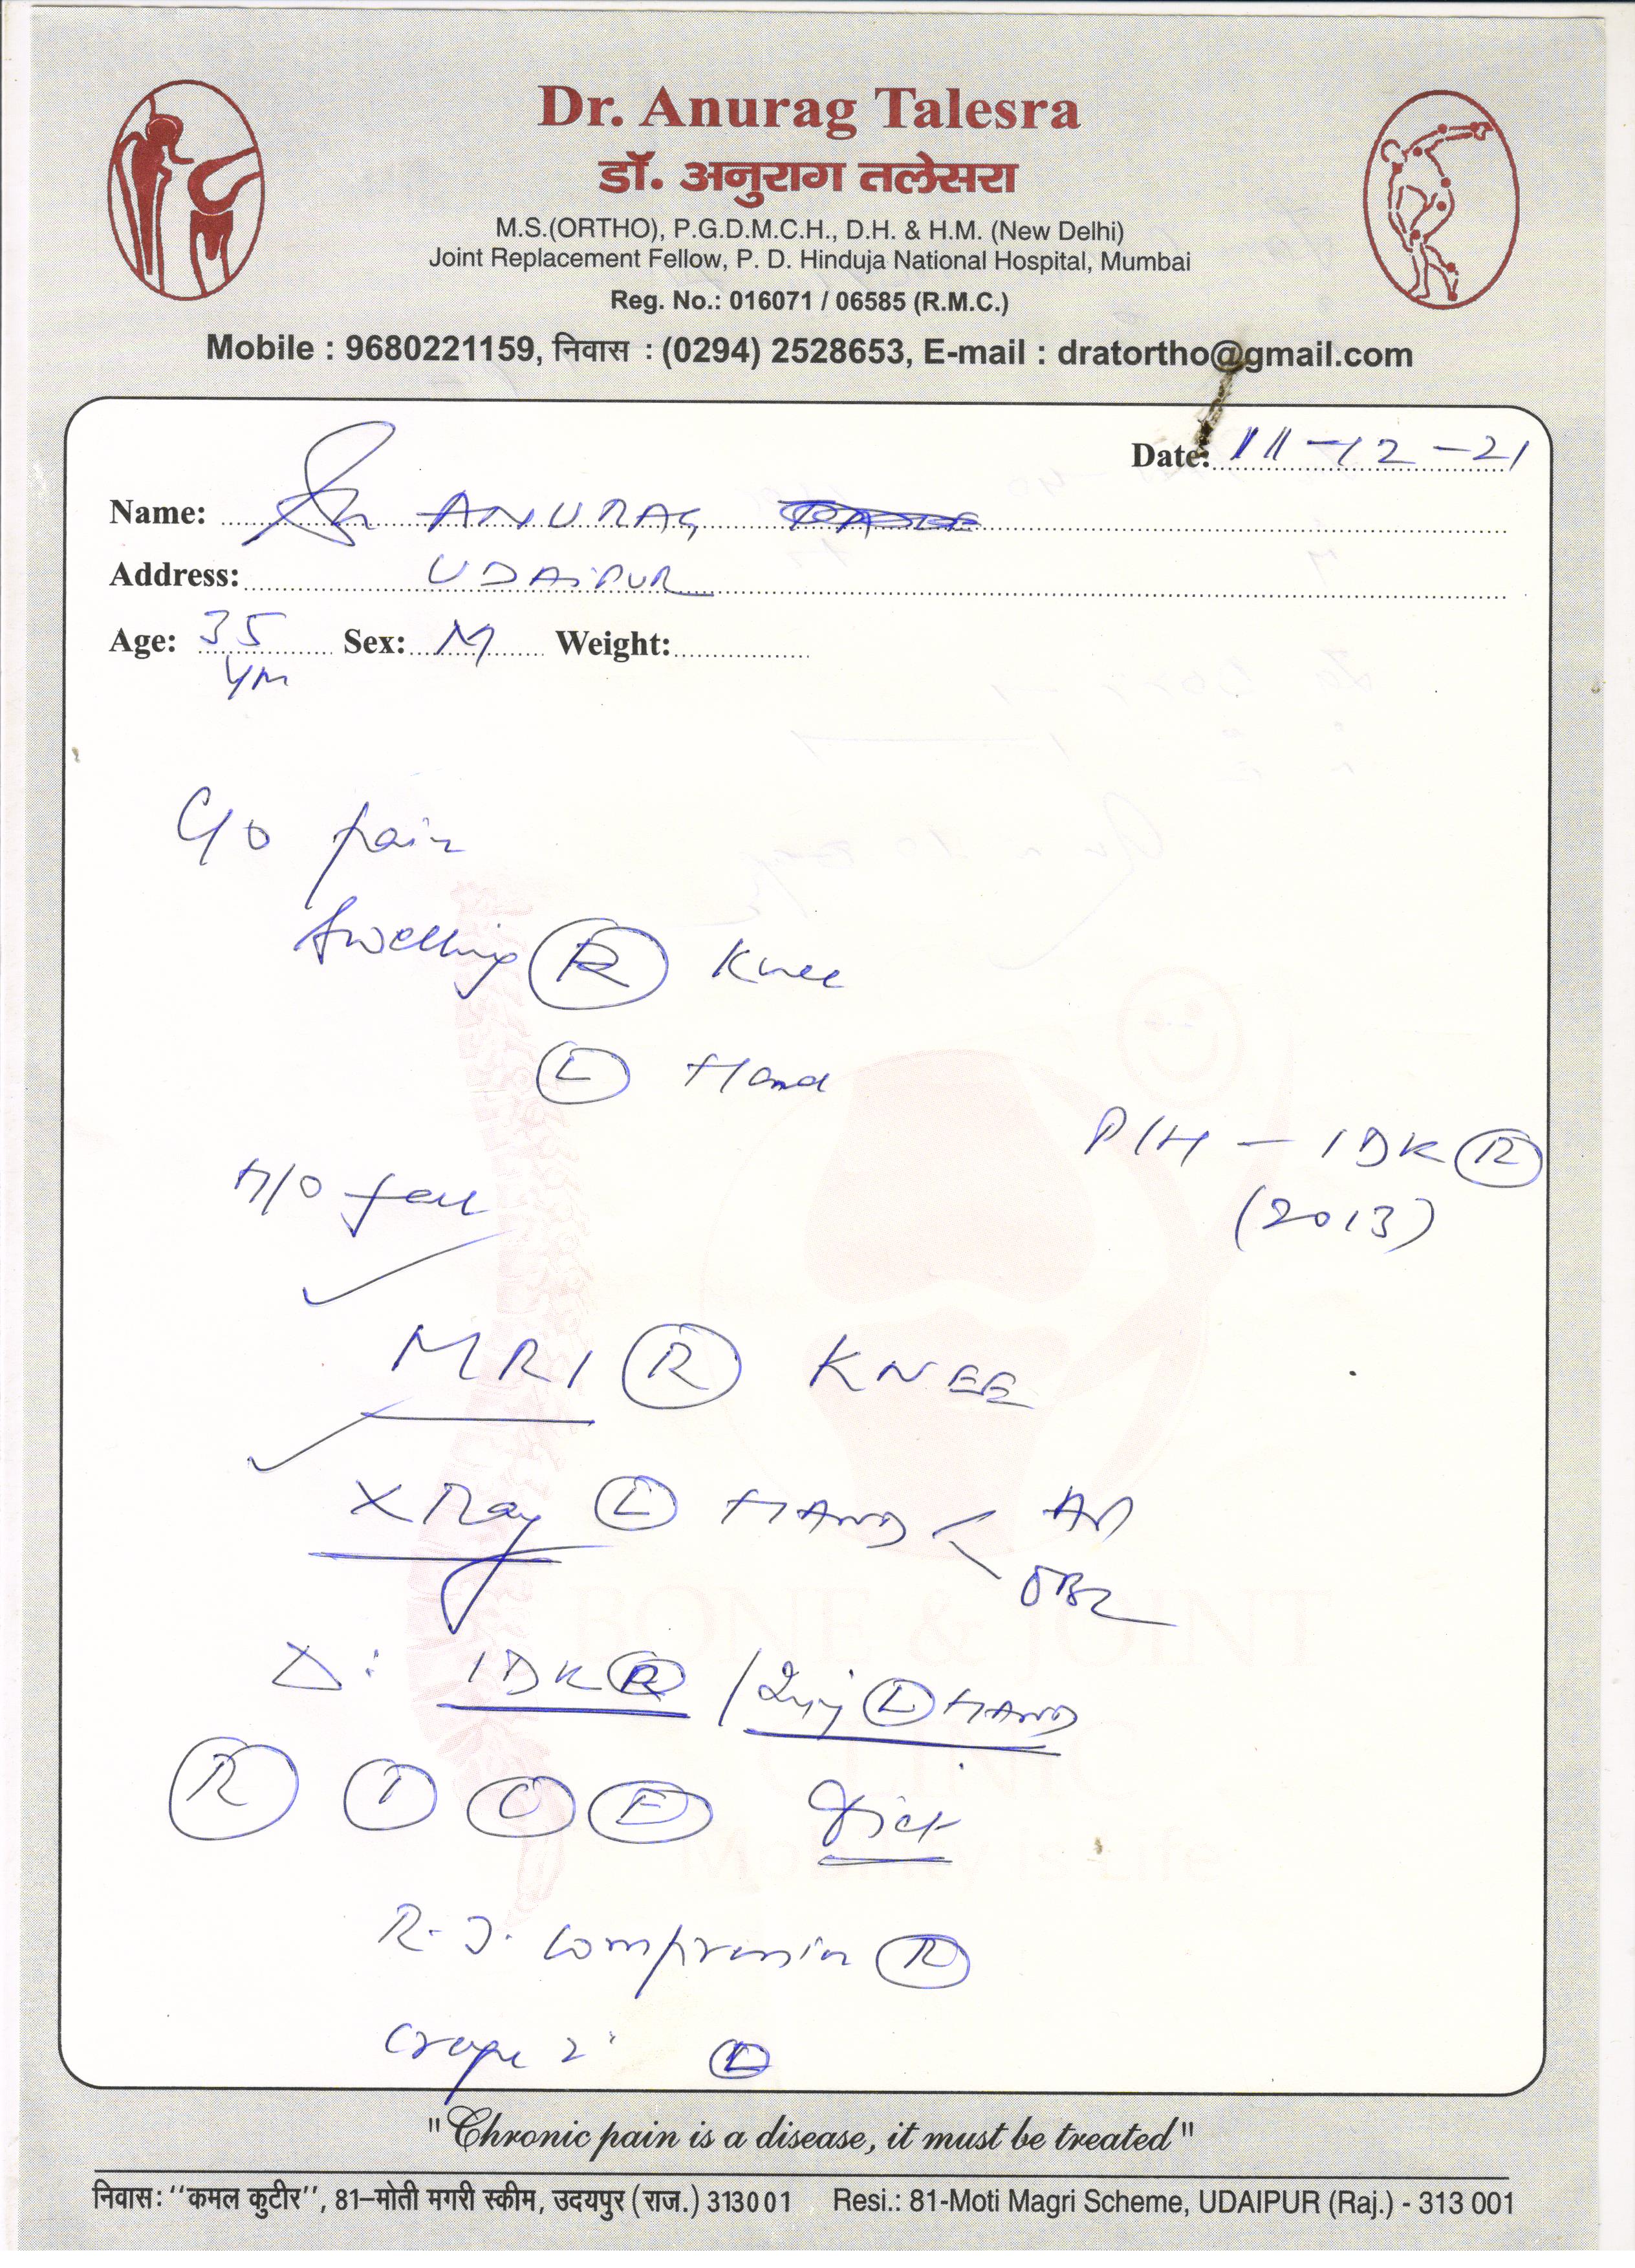 Dr. Anurag Talesra
डॉ. अनुराग तलेसरा
M.S.(ORTHO), P.G.D.M.C.H., D.H. & H.M. (New Delhi)
Joint Replacement Fellow, P. D. Hinduja National Hospital, Mumbai
Reg. No.: 016071 / 06585 (R.M.C.)
Mobile : 9680221159, निवास : (0294) 2528653, E-mail : dratortho@gmail.com
Date: 11-12-21
Name: ANURAG
Address: UDAIPUR
Age: 35 Sex: M Weight:
C/O pain
Swelling R Knee
L Hand
P/H - IDK R
(2013)
H/O fall
MRI R KNEE
X Ray L HAND < AP
OBL
Δ: IDK R / Inj L HAND
R I C E Diet
R.J. Compression R
Crepe 2" L
BONE & JOINT
CLINIC
Mobility is Life
"Chronic pain is a disease, it must be treated"
निवास: ‘‘कमल कुटीर’’, 81–मोती मगरी स्कीम, उदयपुर (राज.) 313001 Resi.: 81-Moti Magri Scheme, UDAIPUR (Raj.) - 313 001